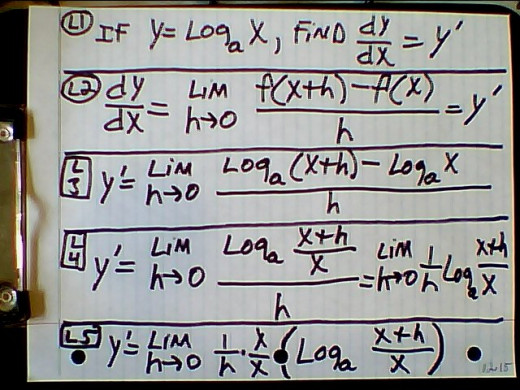 L1 IF y = Logₐ X, FIND dy/dx = y'
L2 dy/dx = LiM h→0 f(x+h) - f(x) / h = y'
L3 y' = LiM h→0 Logₐ (x+h) - Logₐ X / h
L4 y' = LiM h→0 Logₐ x+h/x / h = LiM h→0 1/h Logₐ x+h/x
L5 y' = LiM h→0 1/h · x/x (Logₐ x+h/x)